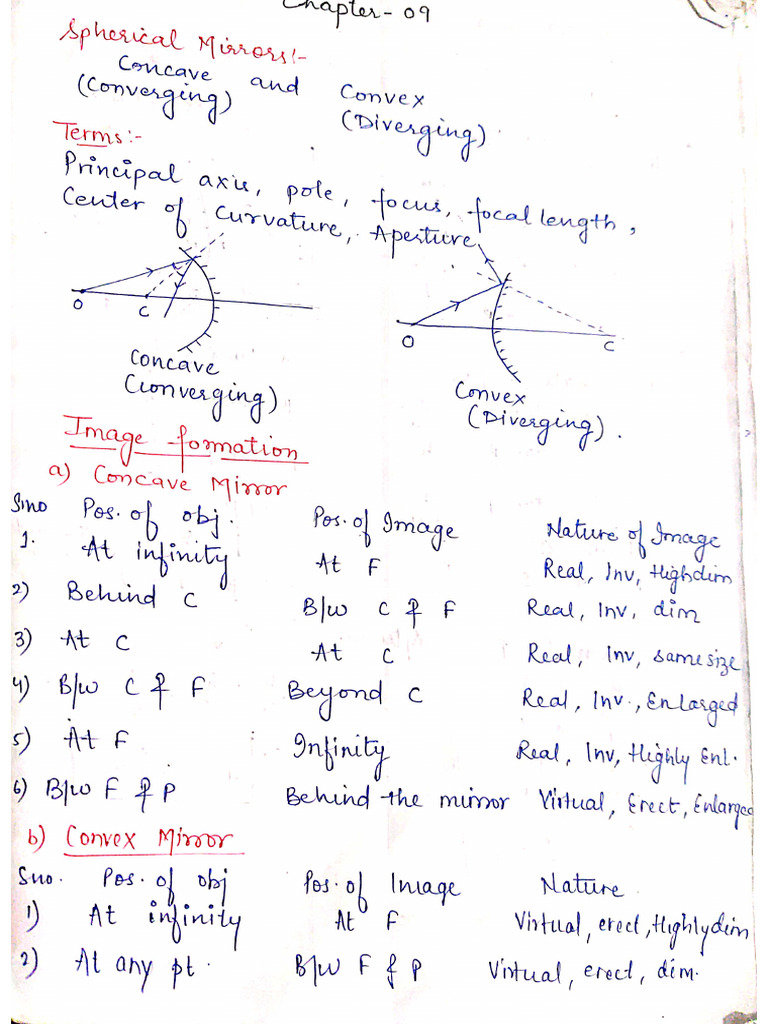 Chapter-09
Spherical Mirrors:-
Concave and Convex
(Converging) (Diverging)
Terms:-
Principal axis, pole, focus, focal length,
Center of Curvature, Aperture
O C
O C
Concave
(Converging)
Convex
(Diverging).
Image formation
a) Concave Mirror
S.no Pos. of obj. Pos. of Image Nature of Image
1. At infinity At F Real, Inv, High dim
2) Behind C B/w C & F Real, Inv, dim
3) At C At C Real, Inv, same size
4) B/w C & F Beyond C Real, Inv., Enlarged
5) At F Infinity Real, Inv, Highly Enl.
6) B/w F & P Behind the mirror Virtual, Erect, Enlarged
b) Convex Mirror
Sno. Pos. of obj Pos. of Image Nature
1) At infinity At F Virtual, erect, Highly dim
2) At any pt. B/w F & P Virtual, erect, dim.